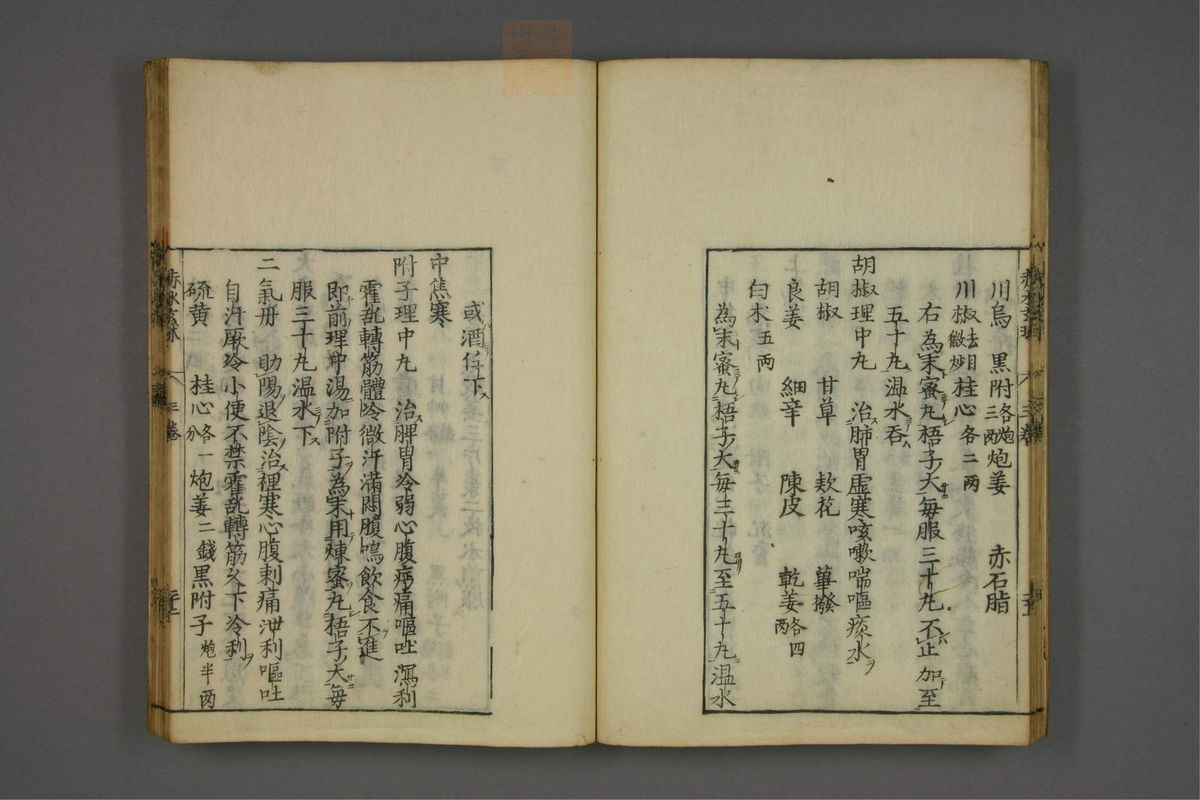 川烏 黒附各炮三両炮姜 赤石脂
川椒去目微炒桂心各二両
右為末蜜丸梧子大毎服三十丸不止加至
五十丸温水呑
胡椒理中丸 治肺胃虚寒咳嗽喘嘔痰水
胡椒 甘草 欵花 蓽撥
良姜 細辛 陳皮 乾姜各四両
白朮五両
為末蜜丸梧子大毎三十丸至五十丸温水
或酒任下
中焦寒
附子理中丸 治脾胃冷弱心腹疼痛嘔吐瀉利
霍乱轉筋體冷微汗滿悶腹鳴飲食不進
即前理中湯加附子為末用煉蜜丸梧子大毎
服三十丸温水下
二氣丹 助陽退陰治裡寒心腹刺痛泄利嘔吐
自汗厥冷小便不禁霍乱轉筋久下冷利
硫黄 桂心各一分炮姜二錢黒附子炮半両